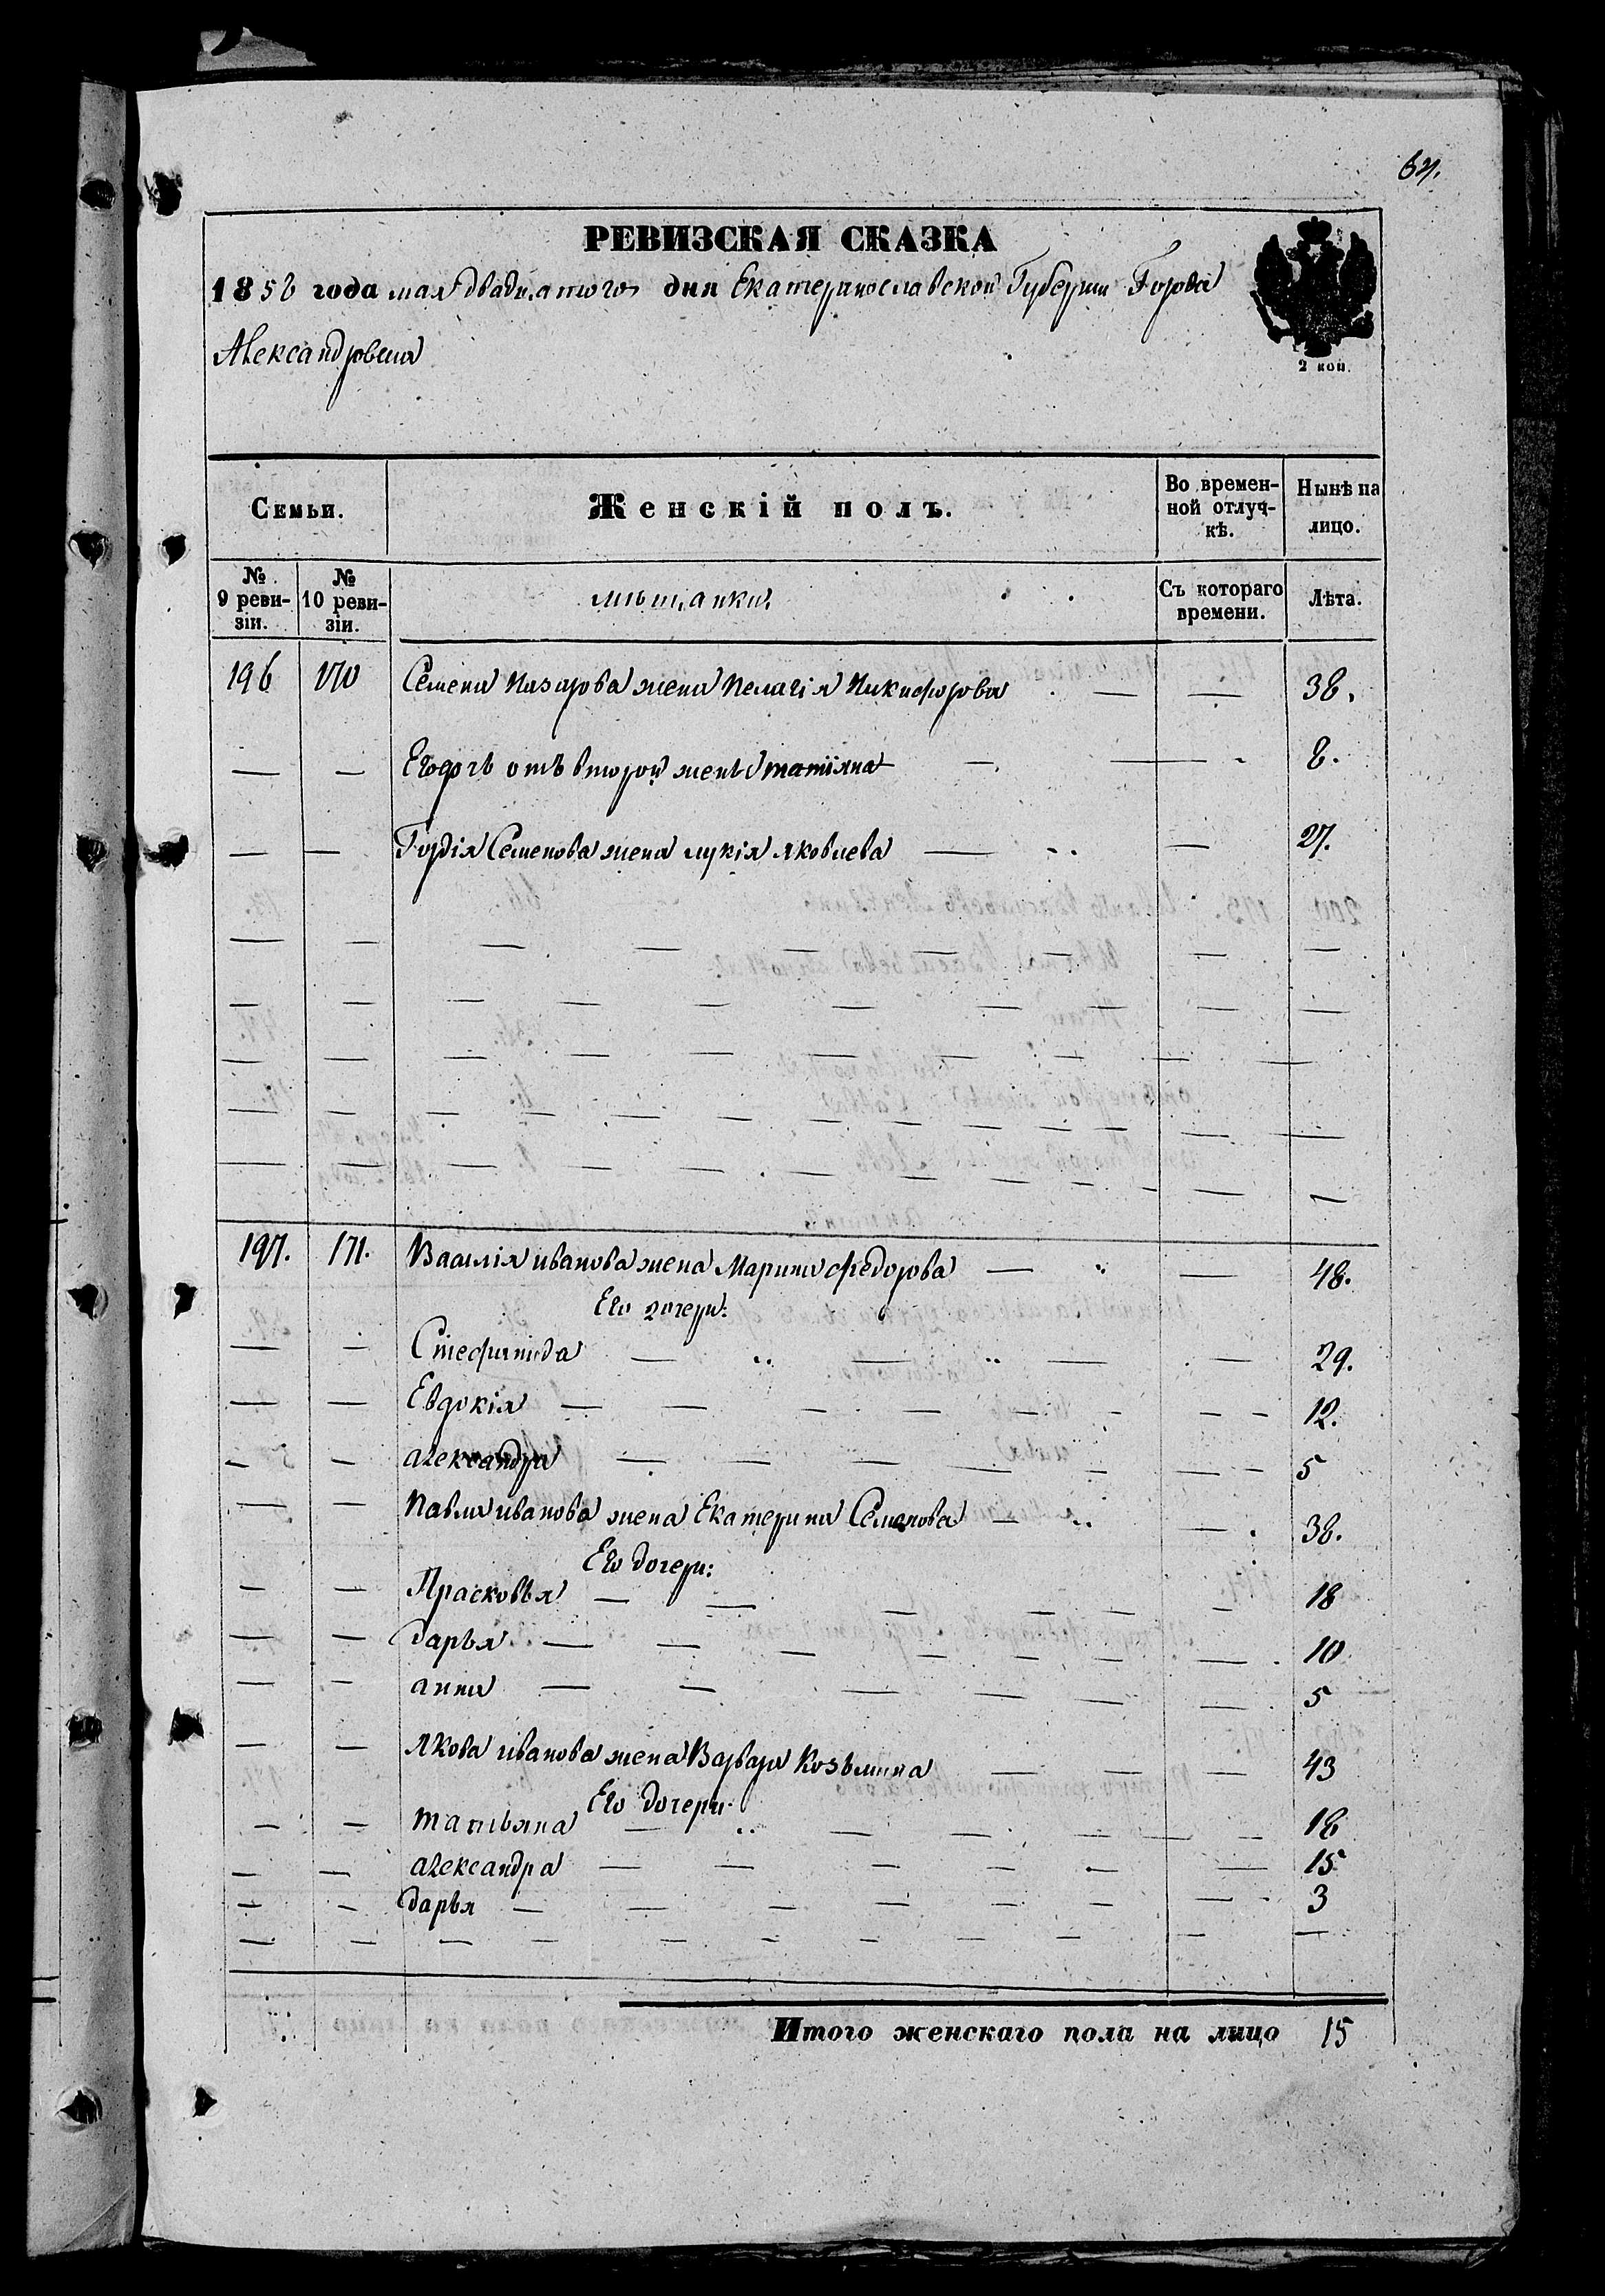 67.
РЕВИЗСКАЯ СКАЗКА
1858 года мая двадцатого дня Екатеринославской Губернии Города
Александровска
2 коп.
Семьи.
Женскій полъ.
Во времен-
ной отлуч-
кѣ.
Нынѣ на
лицо.
№
9 реви-
зіи.
№
10 реви-
зіи.
мѣщанки
Съ котораго
времени.
Лѣта.
196 170 Семена Назарова жена Пелагія Никифорова — — 38.
— — Его дочь отъ второй жены татіяна — — 8.
— — Гордія Семенова жена лукія яковлева — — 27.
197. 171. Василія иванова жена Марина федорова — — 48.
Его дочери:
— — Стефанида — — — — 29.
— — Евдокія — — — — 12.
— — александра — — — — 5
— — Павла иванова жена Екатерина Семенова — — 38.
Его дочери:
— — Прасковья — — — — 18
— — дарья — — — — 10
— — анна — — — — 5
— — якова иванова жена Варвара Козьмина — — — 43
Его дочери
— — татьяна — — — — 18
— — александра — — — — 15
— — дарья — — — — 3
Итого женскаго пола на лицо 15